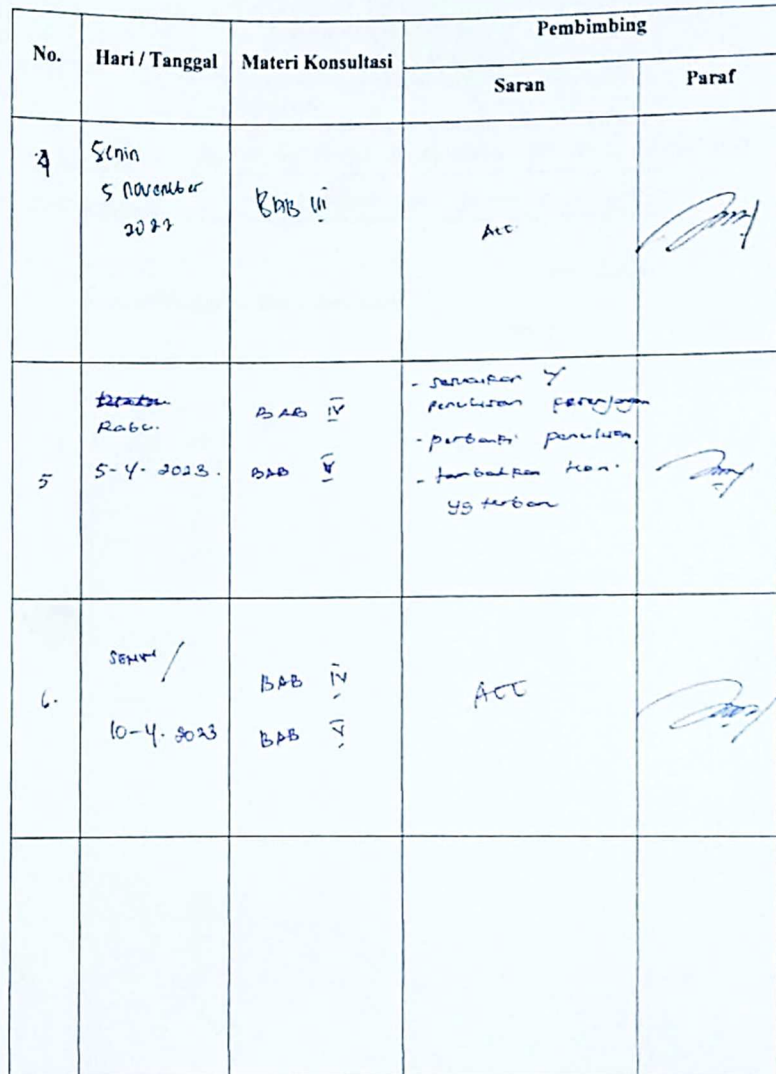 No. Hari / Tanggal Materi Konsultasi Pembimbing
Saran Paraf
4 Senin
5 november
2022
BAB III
Acc
5
Rabu.
5-4-2023.
BAB IV
BAB V
- sesuaikan
penulisan
- perbaiki penulisan.
- tambahkan
yg
6.
Senin /
10-4-2023
BAB IV
BAB V
ACC